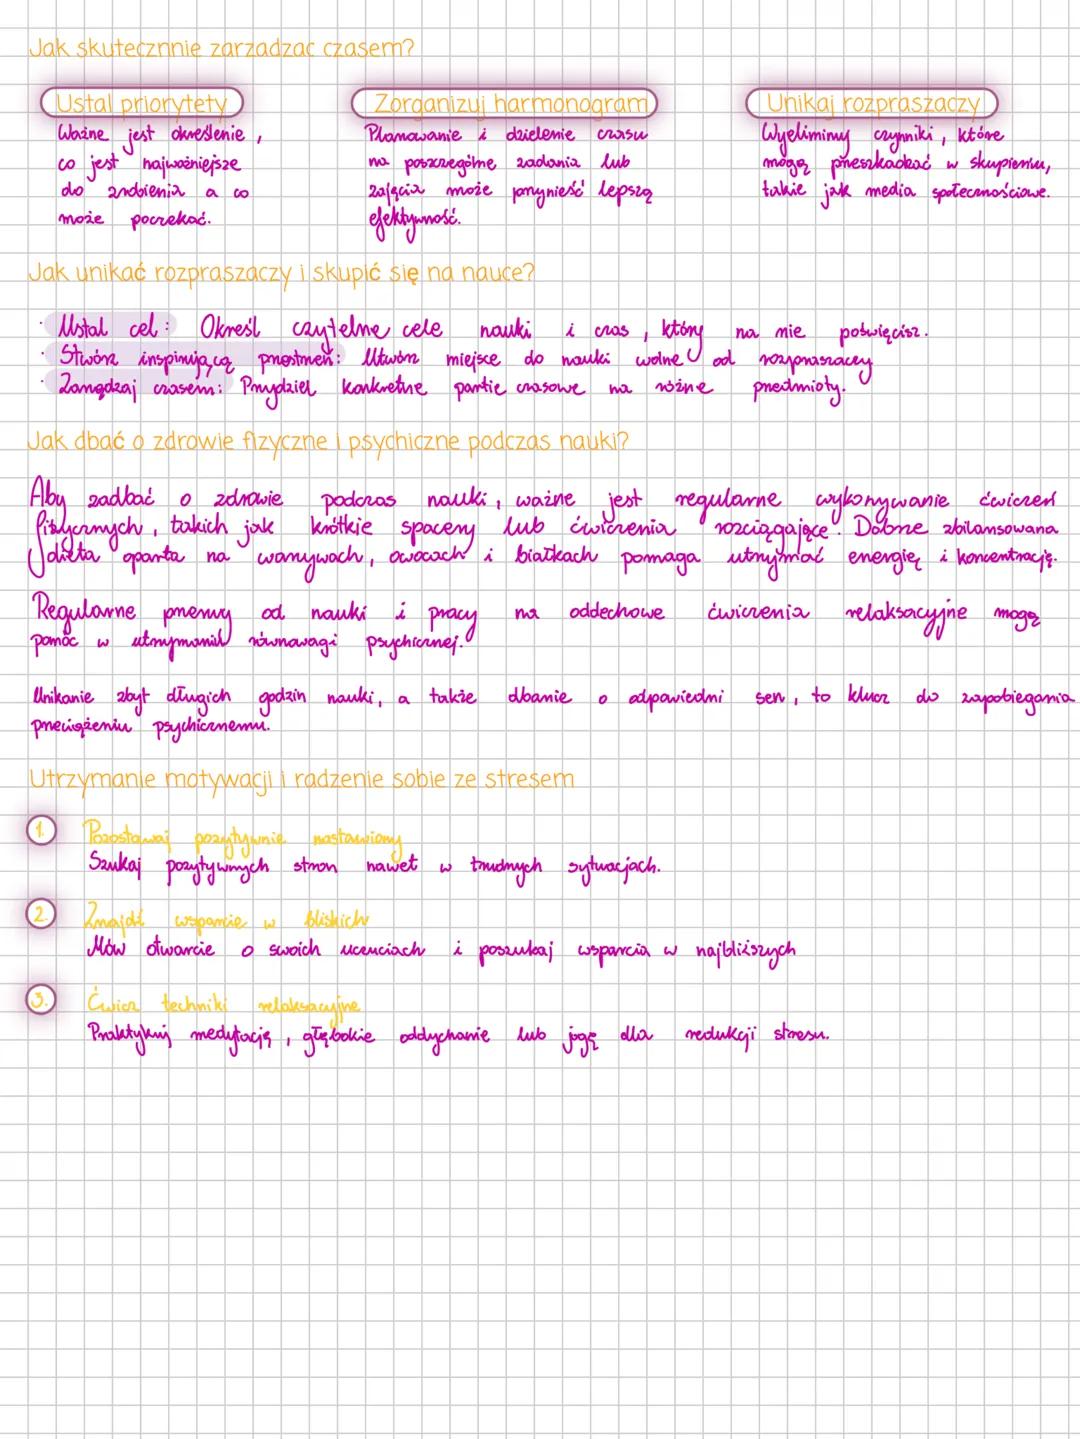 Jak skutecznnie zarzadzac czasem?
Ustal priorytety
Ważne jest określenie,
co jest najważniejsze
do zrobienia a co
może poczekać.
Zorganizuj harmonogram
Planowanie i dzielenie czasu
na poszczególne zadania lub
zajęcia może przynieść lepszą
efektywność.
Unikaj rozpraszaczy
Wyeliminuj czynniki, które
mogą przeszkadzać w skupieniu,
takie jak media społecznościowe.
Jak unikać rozpraszaczy i skupić się na nauce?
· Ustal cel: Określ czytelne cele nauki i czas, który na nie poświęcisz.
· Stwórz inspirującą przestrzeń: Utwórz miejsce do nauki wolne od rozpraszaczy
· Zarządzaj czasem: Przydziel konkretne partie czasowe na różne przedmioty.
Jak dbać o zdrowie fizyczne i psychiczne podczas nauki?
Aby zadbać o zdrowie podczas nauki, ważne jest regularne wykonywanie ćwiczeń
fizycznych, takich jak krótkie spacery lub ćwiczenia rozciągające. Dobrze zbilansowana
dieta oparta na warzywach, owocach i białkach pomaga utrzymać energię i koncentrację.
Regularne przerwy od nauki i pracy na oddechowe ćwiczenia relaksacyjne mogą
pomóc w utrzymaniu równowagi psychicznej.
Unikanie zbyt długich godzin nauki, a także dbanie o odpowiedni sen, to klucz do zapobiegania
przeciążeniu psychicznemu.
Utrzymanie motywacji i radzenie sobie ze stresem
1. Pozostawaj pozytywnie nastawiony
Szukaj pozytywnych stron nawet w trudnych sytuacjach.
2. Znajdź wsparcie w bliskich
Mów otwarcie o swoich uczuciach i poszukaj wsparcia w najbliższych
3. Ćwicz techniki relaksacyjne
Praktykuj medytację, głębokie oddychanie lub jogę dla redukcji stresu.